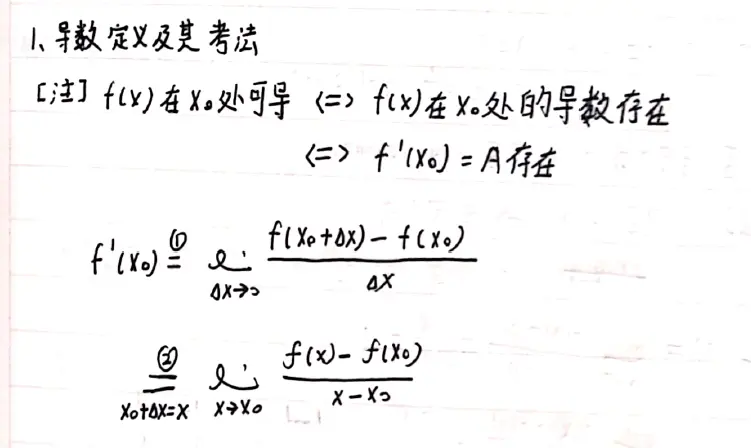 1、导数定义及其考法
[注] f(x)在x₀处可导 <=> f(x)在x₀处的导数存在
<=> f'(x₀) = A存在
f'(x₀) ①= lim Δx→0 (f(x₀+Δx) - f(x₀)) / Δx
②= x₀+Δx=x lim x→x₀ (f(x) - f(x₀)) / (x - x₀)